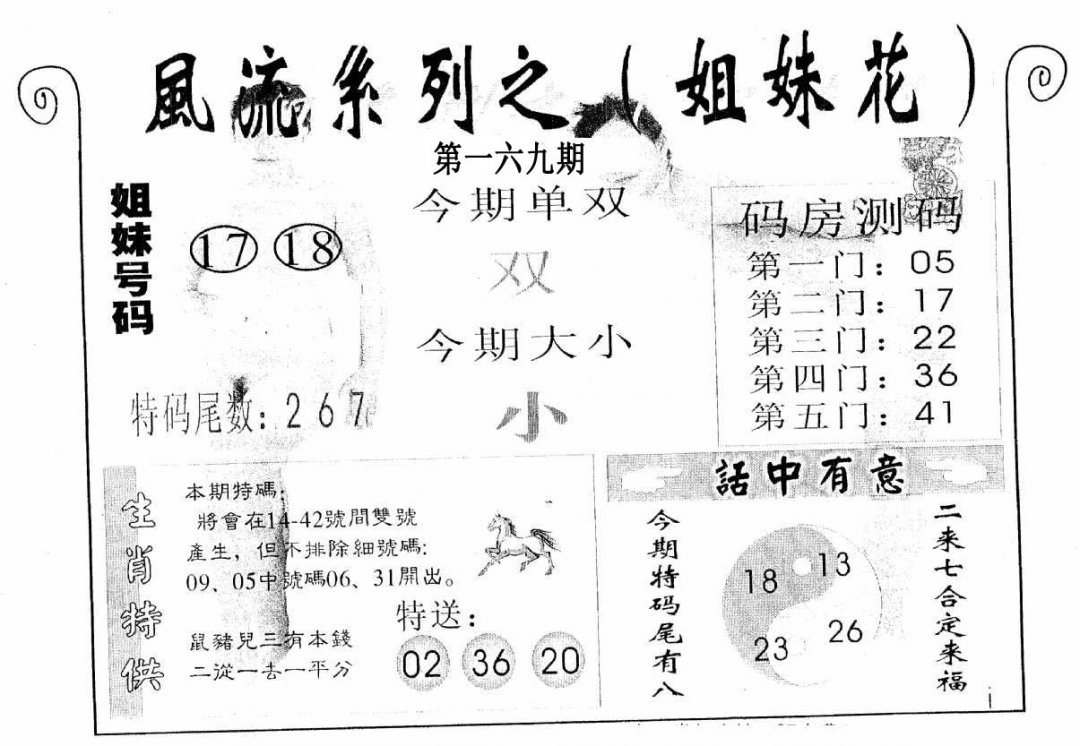 風流系列之（姐妹花）
第一六九期
姐妹号码
17 18
特码尾数：267
今期单双
双
今期大小
小
码房测码
第一门：05
第二门：17
第三门：22
第四门：36
第五门：41
生肖特供
本期特碼：
將會在14-42號間雙號
產生，但不排除細號碼:
09、05中號碼06、31開出。
鼠豬兒三有本錢
二從一去一平分
特送：
02 36 20
話中有意
今期特码尾有八
18 13
23 26
二来七合定来福